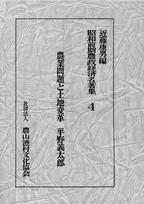 近藤康男編
昭和前期農政経済名著集
4
農業問題と土地変革
平野義太郎
社団法人
農山漁村文化協会